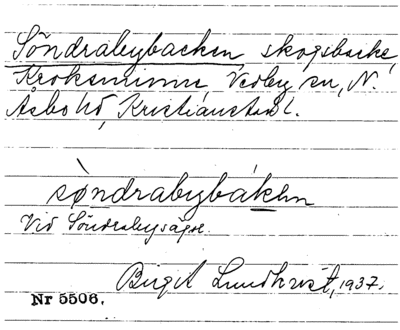 Söndrabybacken, skogsbacke,
Kroksminne, Vedby sn, N.
Åsbo hd, Kristianstad l.
söndrabybáken
Vid Söndrabyvägen.
Birgit Lundkvist, 1937.
Nr 5506.